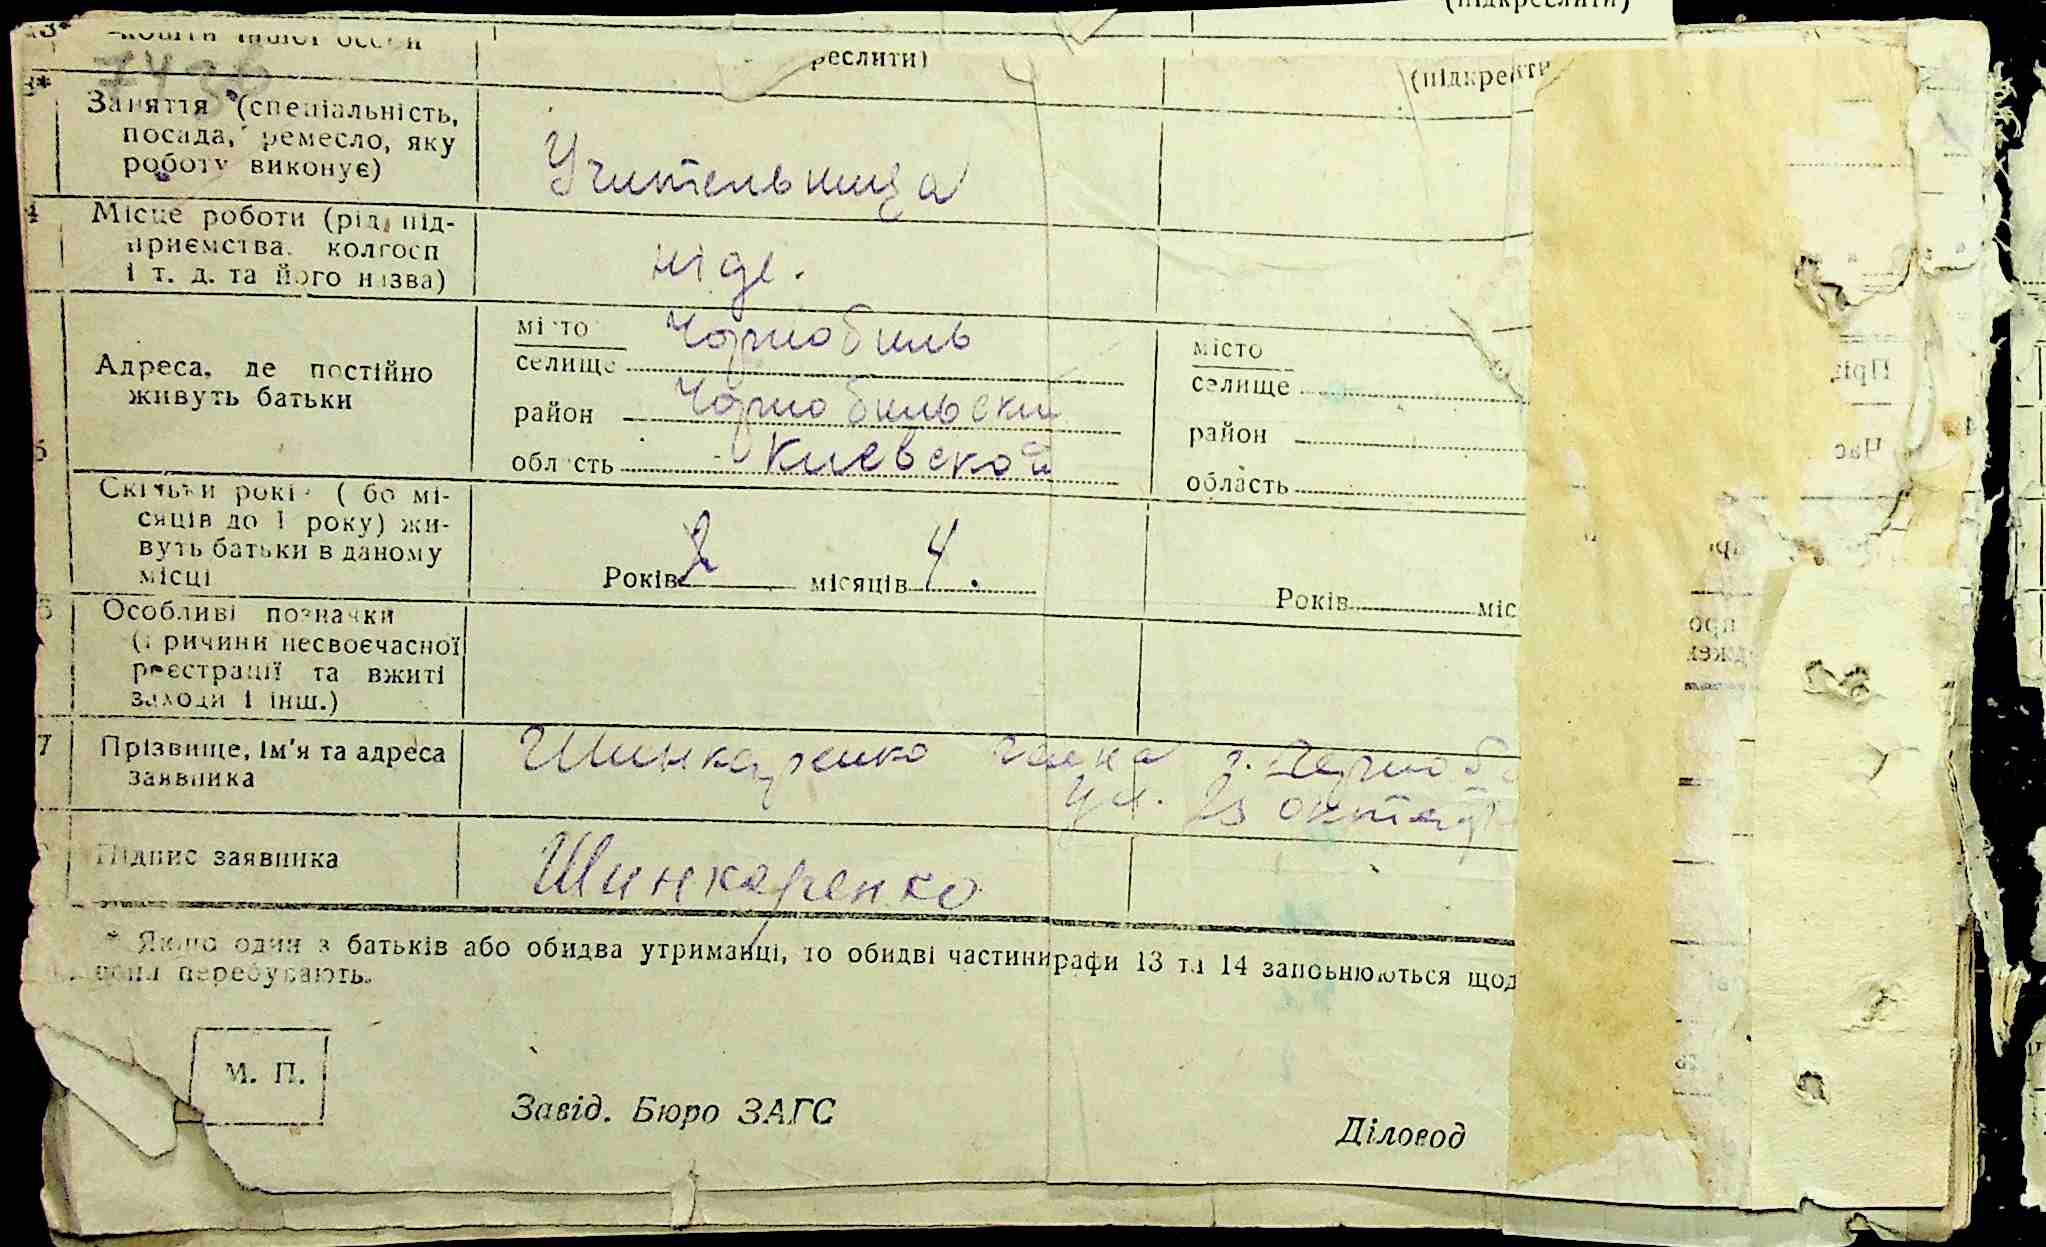 (підкреслити)
реслити)
(підкре
13*
Заняття (спеціальність,
посада, ремесло, яку
роботу виконує)
Учительница
4
Місце роботи (рід під-
приємства, колгосп
і т. д. та його назва)
ніде.
Адреса, де постійно
живуть батьки
місто
селище
Чорнобиль
район
Чорнобильский
область
Киевской
місто
селище
район
область
Скільки років ( бо мі-
сяців до 1 року) жи-
вуть батьки в даному
місці
Років 2 місяців 4.
Років міс
Особливі позначки
(причини несвоєчасної
реєстрації та вжиті
заходи і інш.)
7
Прізвище, ім'я та адреса
заявника
Шинкаренко г.
ул. 25 октяб
Підпис заявника
Шинкаренко
* Якщо один з батьків або обидва утриманці, то обидві частини рафи 13 та 14 заповнюються щод
перебувають.
М. П.
Завід. Бюро ЗАГС
Діловод